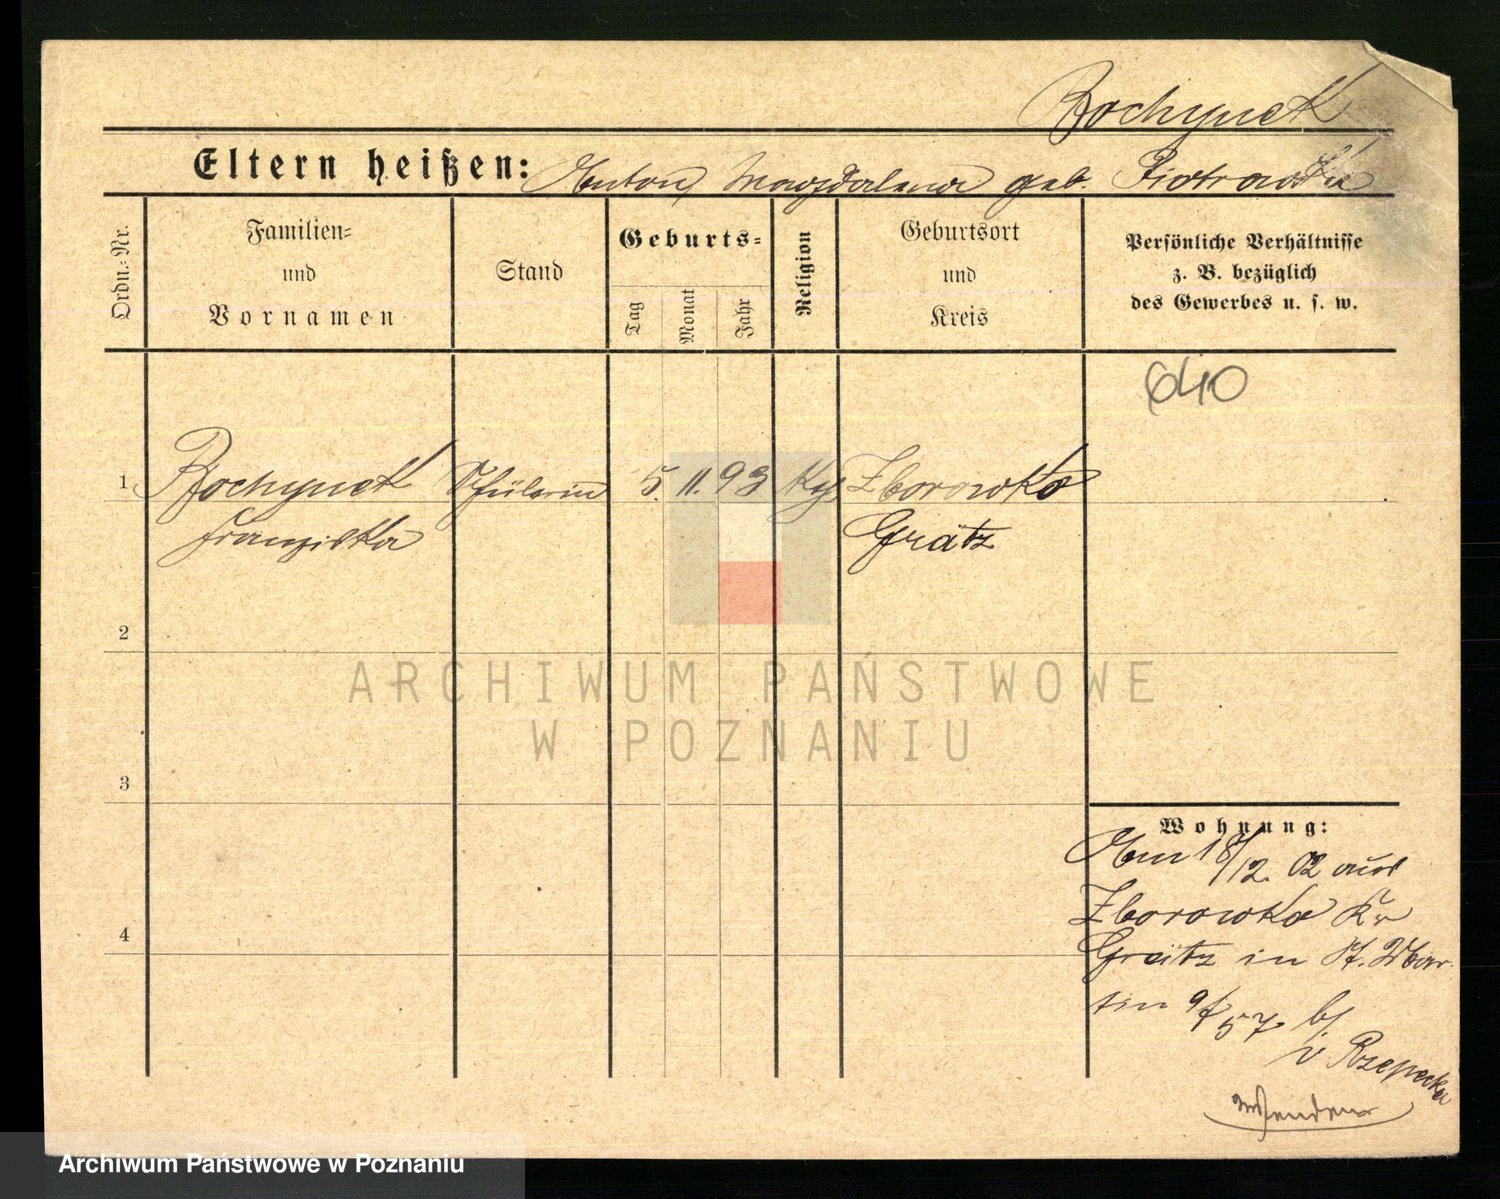 Bochynek
Eltern heißen: Anton, Magdalena geb. Piotrowska
Ordn.-Nr.
Familien-
und
Vornamen
Stand
Geburts-
Tag
Monat
Jahr
Religion
Geburtsort
und
Kreis
Persönliche Verhältnisse
z. B. bezüglich
des Gewerbes u. s. w.
640
1 Bochynek Schülerin 5. 11. 93 Zborowko
Franziska Grätz
2
ARCHIWUM PAŃSTWOWE
W POZNANIU
3
Wohnung:
Am 18/12. 02 aus
4
Zborowko Kr
Grätz in St. Mar-
tin 57 b/
v Rzepecka
Archiwum Państwowe w Poznaniu